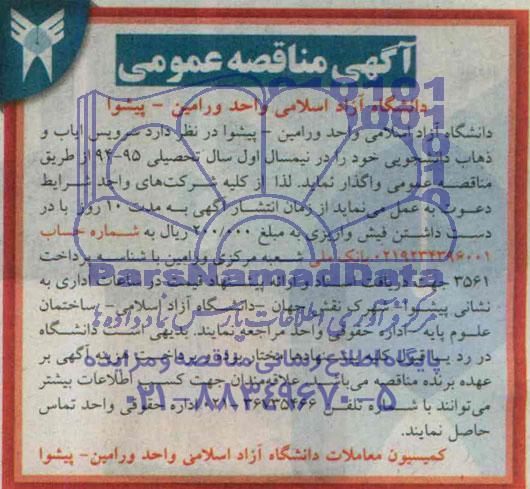 آگهی مناقصه عمومی
دانشگاه آزاد اسلامی واحد ورامین - پیشوا
دانشگاه آزاد اسلامی واحد ورامین - پیشوا در نظر دارد سرویس ایاب و
ذهاب دانشجویی خود را در نیمسال اول سال تحصیلی ۹۵-۹۴ از طریق
مناقصه عمومی واگذار نماید. لذا از کلیه شرکت‌های واجد شرایط
دعوت به عمل می‌نماید از زمان انتشار آگهی به مدت ۱۰ روز با در
دست داشتن فیش واریزی به مبلغ ۲۰۰/۰۰۰ ریال به شماره حساب
بانک ملی شعبه مرکزی ورامین با شناسه پرداخت
۳۵۶۱ جهت دریافت اسناد و ارائه پیشنهاد قیمت در ساعات اداری به
نشانی پیشوا شهرک نقش جهان - دانشگاه آزاد اسلامی - ساختمان
علوم پایه - اداره حقوقی واحد مراجعه نمایند. بدیهی است دانشگاه
در رد یا قبول کلیه پیشنهادها مختار بوده و پرداخت هزینه آگهی بر
عهده برنده مناقصه می‌باشد. علاقه‌مندان جهت کسب اطلاعات بیشتر
می‌توانند با شماره تلفن ۳۶۷۳۵۲۶۶-۰۲۱ اداره حقوقی واحد تماس
حاصل نمایند.
کمیسیون معاملات دانشگاه آزاد اسلامی واحد ورامین- پیشوا
ParsNamadData
مرکز فرآوری اطلاعات پارس نماد داده ها
پایگاه اطلاع رسانی مناقصه و مزایده
۰۲۱-۸۸۳۴۹۶۷۰-۵